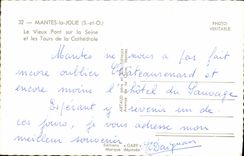 32 - MANTES-la-JOLIE (S.-et-O.)
Le Vieux Pont sur la Seine
et les Tours de la Cathédrale
PHOTO
VERITABLE
Mantes ne nous a pas fait
encore oublier Châteaurenard et
encore moins l'hôtel du Sauvage
Espérant y revenir un de
ces jours, je vous adresse mon
meilleur souvenir
Editions "GABY"
Marque déposée